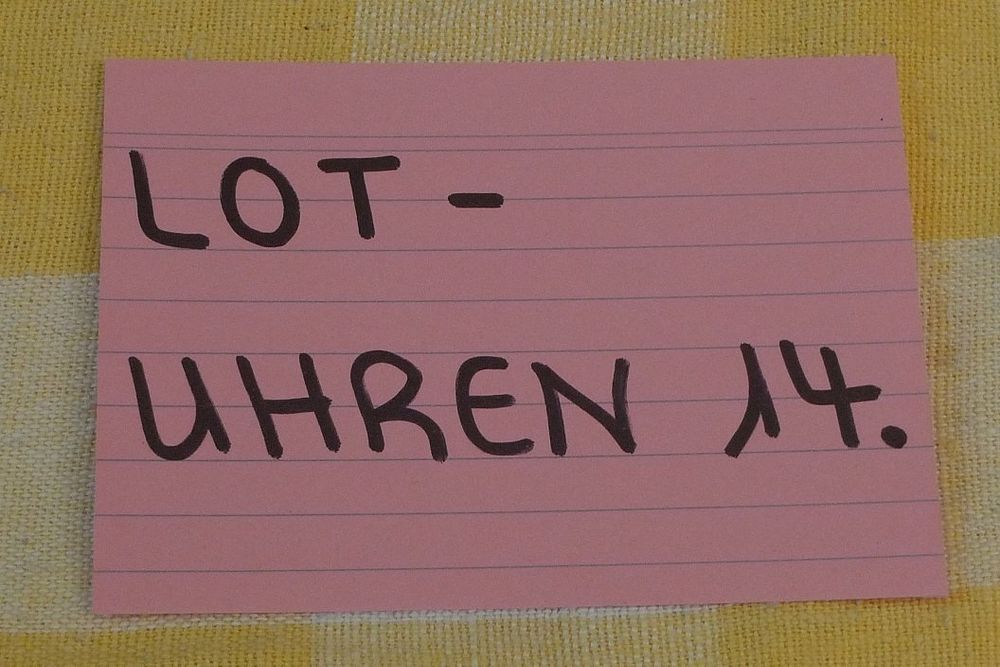 LOT -
UHREN 14.